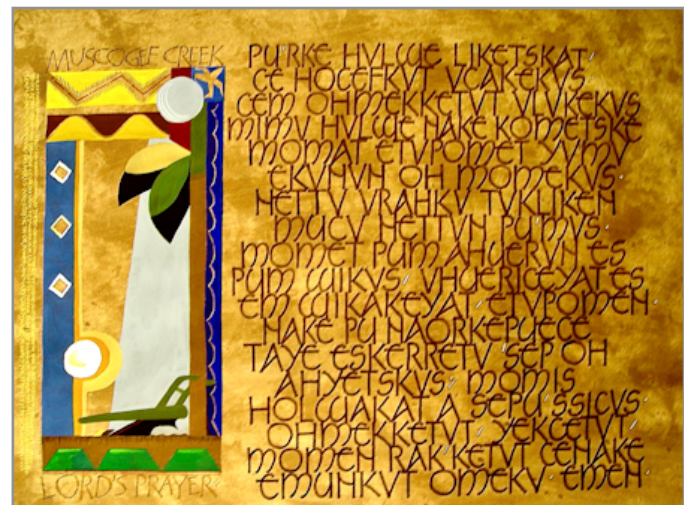 MUSCOGEE CREEK
PU'RKE HVLWE LIKETSKAT,
CE HOCEFKVT VCAKEKVS
CEM OHMEKKETVT VLVKEKVS
MIMV HVLWE NAKE KOMETSKE
MOMAT ETVPOMET YVMV
EKVNVN OH MOMEKVS.
NETTV VRAHKV TVKLIKEN
MUCV NETTVN PU'MVS.
MOMET PUM AHUERVN ES
PUM WIKVS, VHUERICEYAT ES
EM WIKAKEYAT, ETVPOMEN
NAKE PU NAORKEPUECE
TAYE ESKERRETV 'SEP OH
AHYETSKVS, MOMIS
HOLWAKAT A SEPU'SSICVS.
OHMEKKETVT, YEKCETVT,
MOMEN RAKKETVT CENAKE
EMUNKVT OMEKV. EMEN.
LORD'S PRAYER